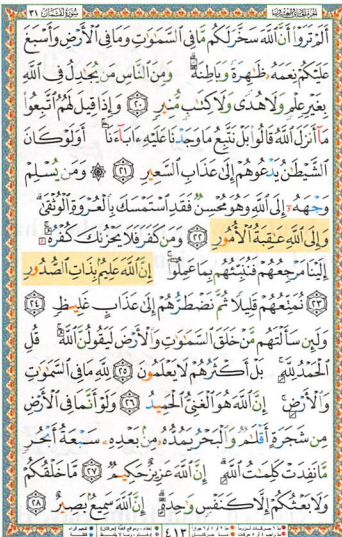 سُورَةُ لُقْمَان ٣١
أَلَمْ تَرَوْا۟ أَنَّ ٱللَّهَ سَخَّرَ لَكُم مَّا فِى ٱلسَّمَٰوَٰتِ وَمَا فِى ٱلْأَرْضِ وَأَسْبَغَ
عَلَيْكُمْ نِعَمَهُۥ ظَٰهِرَةً وَبَاطِنَةً ۗ وَمِنَ ٱلنَّاسِ مَن يُجَٰدِلُ فِى ٱللَّهِ
بِغَيْرِ عِلْمٍ وَلَا هُدًى وَلَا كِتَٰبٍ مُّنِيرٍ ٢٠ وَإِذَا قِيلَ لَهُمُ ٱتَّبِعُوا۟
مَآ أَنزَلَ ٱللَّهُ قَالُوا۟ بَلْ نَتَّبِعُ مَا وَجَدْنَا عَلَيْهِ ءَابَآءَنَآ ۚ أَوَلَوْ كَانَ
ٱلشَّيْطَٰنُ يَدْعُوهُمْ إِلَىٰ عَذَابِ ٱلسَّعِيرِ ٢١ ۞ وَمَن يُسْلِمْ
وَجْهَهُۥٓ إِلَى ٱللَّهِ وَهُوَ مُحْسِنٌ فَقَدِ ٱسْتَمْسَكَ بِٱلْعُرْوَةِ ٱلْوُثْقَىٰ ۗ
وَإِلَى ٱللَّهِ عَٰقِبَةُ ٱلْأُمُورِ ٢٢ وَمَن كَفَرَ فَلَا يَحْزُنكَ كُفْرُهُۥٓ ۚ
إِلَيْنَا مَرْجِعُهُمْ فَنُنَبِّئُهُم بِمَا عَمِلُوٓا۟ ۚ إِنَّ ٱللَّهَ عَلِيمٌۢ بِذَاتِ ٱلصُّدُورِ
٢٣ نُمَتِّعُهُمْ قَلِيلًا ثُمَّ نَضْطَرُّهُمْ إِلَىٰ عَذَابٍ غَلِيظٍ ٢٤
وَلَئِن سَأَلْتَهُم مَّنْ خَلَقَ ٱلسَّمَٰوَٰتِ وَٱلْأَرْضَ لَيَقُولُنَّ ٱللَّهُ ۚ قُلِ
ٱلْحَمْدُ لِلَّهِ ۚ بَلْ أَكْثَرُهُمْ لَا يَعْلَمُونَ ٢٥ لِلَّهِ مَا فِى ٱلسَّمَٰوَٰتِ
وَٱلْأَرْضِ ۚ إِنَّ ٱللَّهَ هُوَ ٱلْغَنِىُّ ٱلْحَمِيدُ ٢٦ وَلَوْ أَنَّمَا فِى ٱلْأَرْضِ
مِن شَجَرَةٍ أَقْلَٰمٌ وَٱلْبَحْرُ يَمُدُّهُۥ مِنۢ بَعْدِهِۦ سَبْعَةُ أَبْحُرٍ
مَّا نَفِدَتْ كَلِمَٰتُ ٱللَّهِ ۗ إِنَّ ٱللَّهَ عَزِيزٌ حَكِيمٌ ٢٧ مَّا خَلْقُكُمْ
وَلَا بَعْثُكُمْ إِلَّا كَنَفْسٍ وَٰحِدَةٍ ۗ إِنَّ ٱللَّهَ سَمِيعٌۢ بَصِيرٌ ٢٨
٤١٣